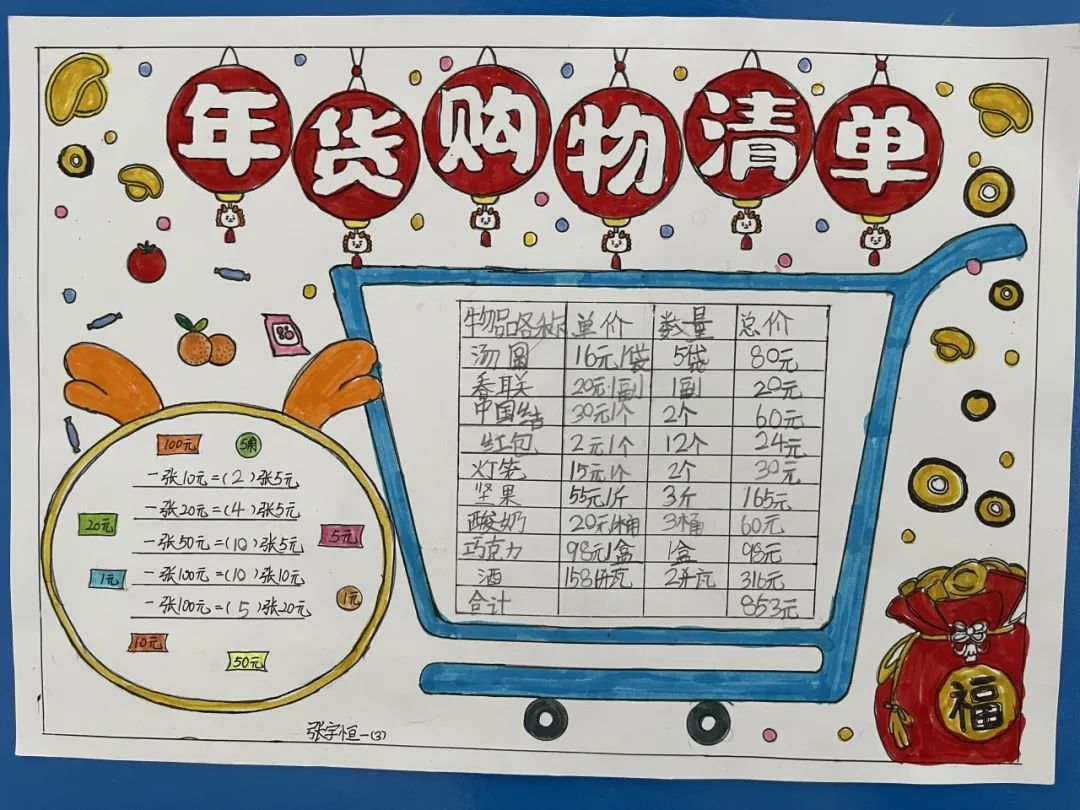 年货购物清单
物品名称 单价 数量 总价
汤圆 16元/袋 5袋 80元
春联 20元/副 1副 20元
中国结 30元/个 2个 60元
红包 2元/个 12个 24元
灯笼 15元/个 2个 30元
坚果 55元/斤 3斤 165元
酸奶 20元/桶 3桶 60元
巧克力 98元/盒 1盒 98元
酒 158/瓶 2瓶 316元
合计 853元
100元 5角
一张10元=(2)张5元
一张20元=(4)张5元
20元
5元
一张50元=(10)张5元
一张100元=(10)张10元
1元
1元
一张100元=(5)张20元
10元
50元
福
张宇恒一(3)